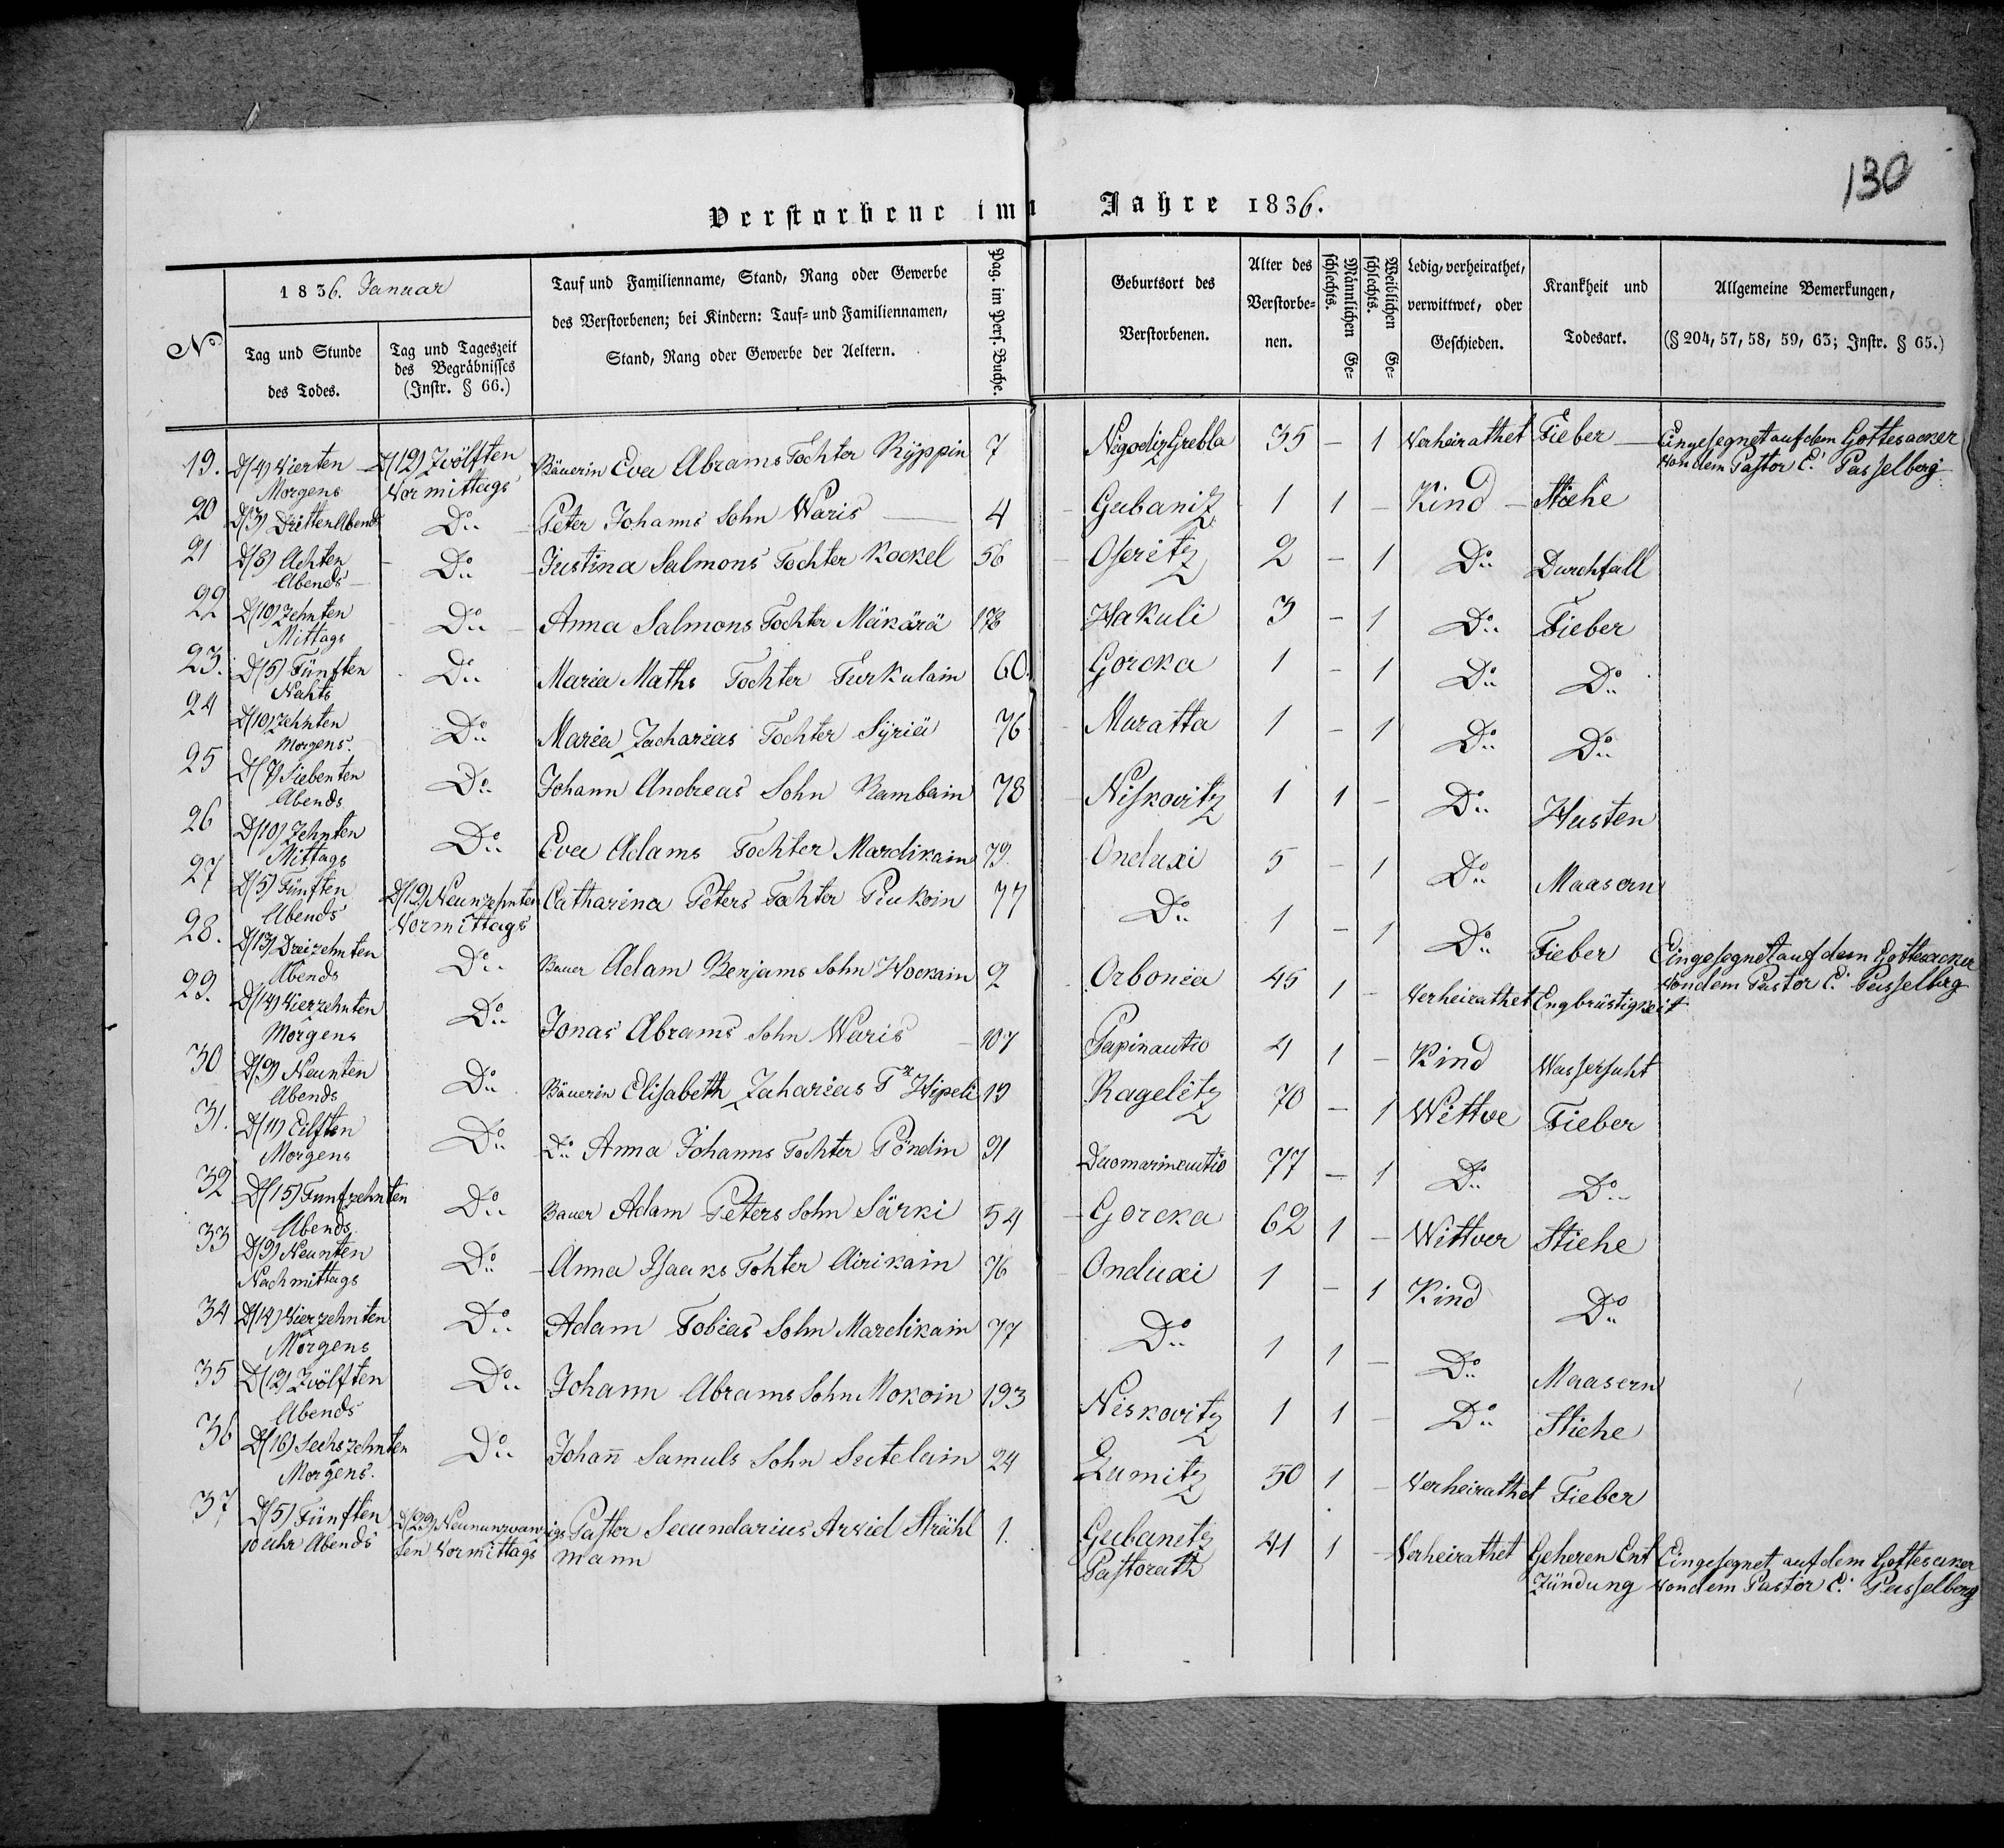 130
Verstorbene im Jahre 1836.
No
1836. Januar
Tag und Stunde des Todes.
Tag und Tageszeit des Begräbnisses (Instr. § 66.)
Tauf und Familienname, Stand, Rang oder Gewerbe des Verstorbenen; bei Kindern: Tauf- und Familiennamen, Stand, Rang oder Gewerbe der Aeltern.
Pag. im Pers. Buche.
Geburtsort des Verstorbenen.
Alter des Verstorbenen.
Männlichen Geschlechts.
Weiblichen Geschlechts.
Ledig, verheirathet, verwittwet, oder Geschieden.
Krankheit und Todesart.
Allgemeine Bemerkungen, (§ 204, 57, 58, 59, 63; Instr. § 65.)
19. D(4) Vierten Morgens D(12) Zvölften Vormittags Bäuerin Eva Abrams Tochter Ryppin 7 Nigodiz Grebla 35 – 1 Verheirathet Fieber Eingesegnet auf dem Gottesacker von dem Pastor C. Passelberg
20 D(3) Dritten Abends Do Peter Johanns Sohn Waris 4 Gubanitz 1 1 – Kind Stiche
21 D(8) Achten Abends Do Justina Salmons Tochter Kockel 56 Oseritz 2 – 1 Do Durchfall
22 D(10) Zehnten Mittags Do Anna Salmons Tochter Mäkärä 178 Hakuli 3 – 1 Do Fieber
23. D(5) Fünften Nahts Do Maria Maths Tochter Turkulain 60. Gorcka 1 – 1 Do Do
24 D(10) zehnten Morgens. Do Maria Zacharias Tochter Syriä 76 Muratta 1 – 1 Do Do
25 D(7) Siebenten Abends Do Johann Andreas Sohn Rambain 78 Niskovitz 1 1 – Do Husten
26 D(10) Zehnten Mittags Do Eva Adams Tochter Mardikain 79. Onduxi 5 – 1 Do Maasern
27 D(5) Fünften Abends D(19) Neunzehnten Vormittags Catharina Peters Tochter Piukoin 77 Do 1 – 1 Do Fieber Eingesegnet auf dem Gottesacker von dem Pastor C. Passelberg
28. D(13) Dreizehnten Abends Do Bauer Adam Benjams Sohn Hockain 2 Orbonia 45 1 – Verheirathet Engbrüstigkeit
29. D(14) Vierzehnten Morgens Do Jonas Abrams Sohn Waris 107 Papinautio 4 1 – Kind Wassersuht
30 D(9) Neunten Abends Do Bäuerin Elisabeth Zaharias Tr Hipeli 19 Ragelitz 70 – 1 Wittve Fieber
31. D(11) Eilften Morgens Do Do Anna Johanns Tochter Pöndin 91 Duomarinautio 77 – 1 Do Do
32 D(15) Funfzehnten Abends Do Bauer Adam Peters Sohn Särki 54 Gorcka 62 1 – Wittver Stiehe
33 D(9) Neunten Nachmittags Do Anna Isaaks Tohter Airikain 76 Onduxi 1 – 1 Kind Do
34 D(14) Vierzehnten Morgens Do Adam Tobias Sohn Mardikain 77 Do 1 1 – Do Maasern
35 D(12) Zvölften Abends Do Johann Abrams Sohn Mokoin 193 Niskovitz 1 1 – Do Stiehe
36 D(16) Sechszehnten Morgens. Do Johan̄ Samuls Sohn Sutelain 24 Zumitz 50 1 – Verheirathet Fieber
37 D(5) Fünften 10 uhr Abends D(29) Neununzvanzigsten Vormittags Pastor Secundarius Arvid Strählmann 1. Gubanitz Pastorath 41 1 – Verheirathet Geheren Entzündung Eingesegnet auf dem Gottesaker von dem Pastor C. Passelberg